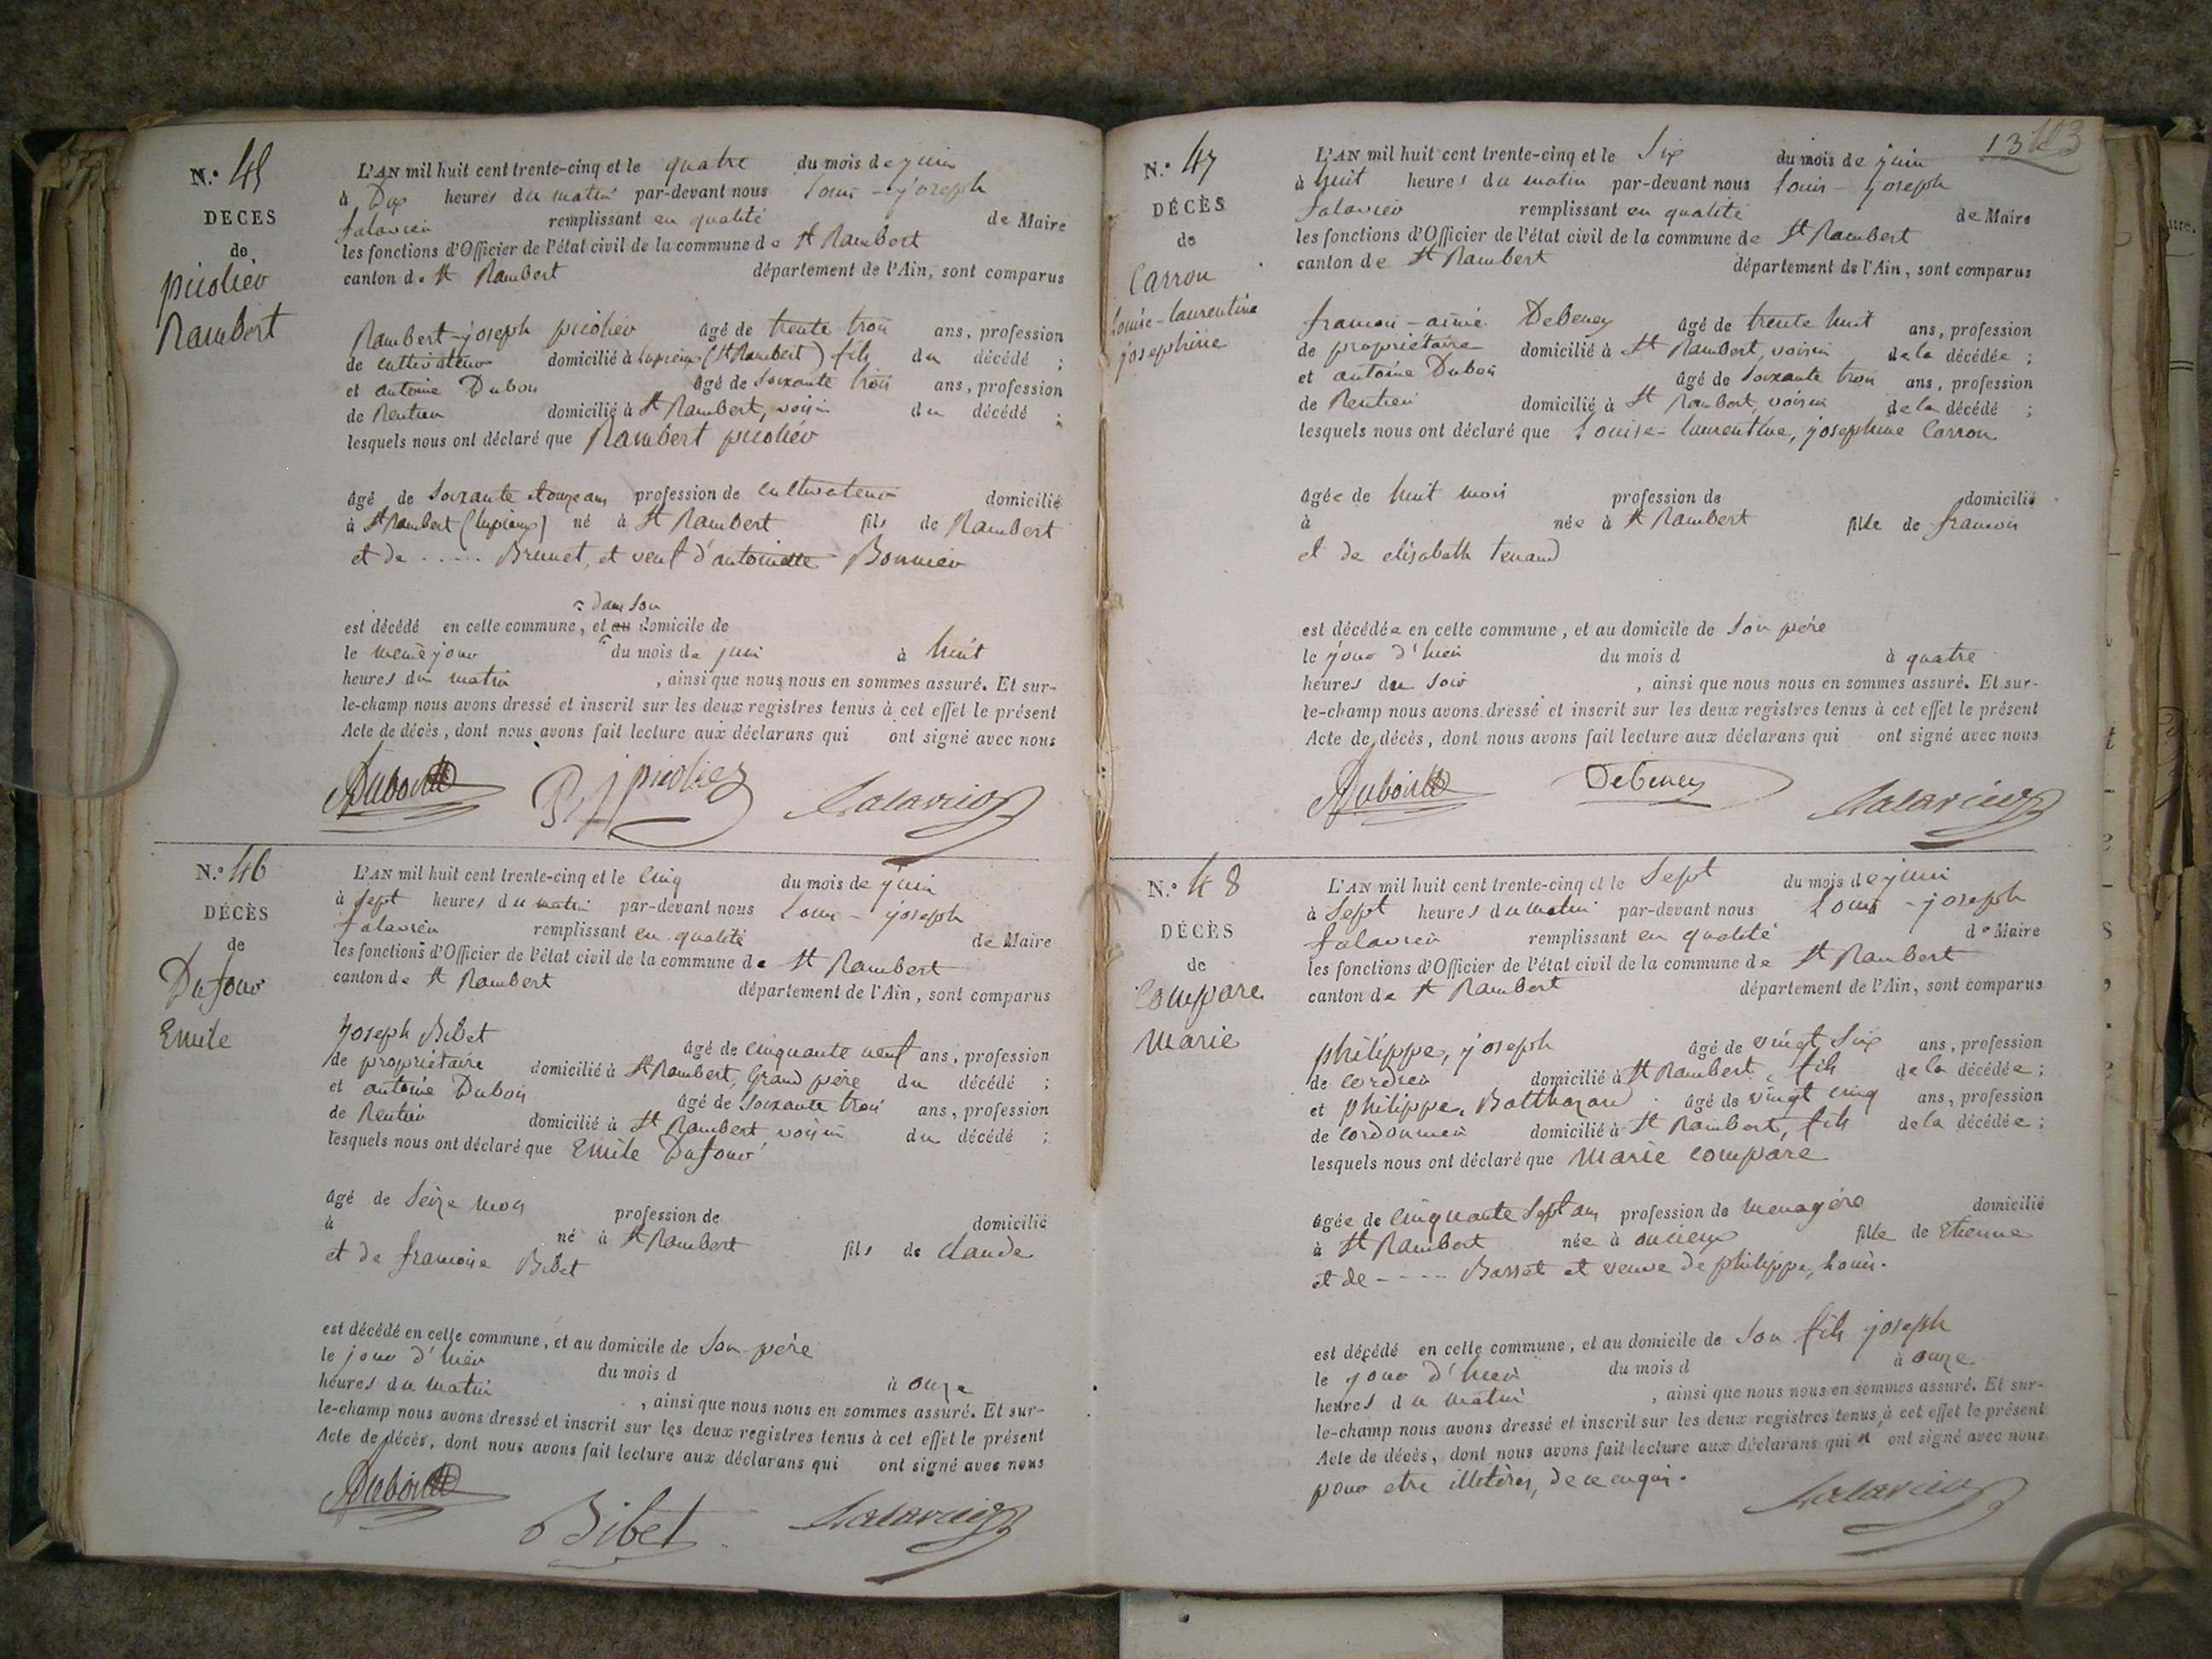 N.° 45
DÉCÈS
de
picolier
Rambert
L'AN mil huit cent trente-cinq et le quatre du mois de juin
à Dix heures du matin par-devant nous Louis - joseph
falavier remplissant en qualité de Maire
les fonctions d'Officier de l'état civil de la commune de St Rambert
canton de St Rambert département de l'Ain, sont comparus
Rambert-joseph picolier âgé de trente trois ans, profession
de cultivateur domicilié à (St Rambert) fils du décédé ;
et antoine Dubois âgé de soixante trois ans, profession
de Rentier domicilié à St Rambert, voisin du décédé ;
lesquels nous ont déclaré que Rambert picolier
âgé de soixante profession de cultivateur domicilié
à St Rambert né à St Rambert fils de Rambert
et de ..... Brunet, et veuf d'antoinette Bonnier
dans son
est décédé en cette commune, et au domicile de
le meme jour du mois de juin à huit
heures du matin , ainsi que nous nous en sommes assuré. Et sur-
le-champ nous avons dressé et inscrit sur les deux registres tenus à cet effet le présent
Acte de décès, dont nous avons fait lecture aux déclarans qui ont signé avec nous
Dubois R j picolier falavier
N.° 46
DÉCÈS
de
Dufour
Emile
L'AN mil huit cent trente-cinq et le cinq du mois de juin
à sept heures du matin par-devant nous Louis - joseph
falavier remplissant en qualité de Maire
les fonctions d'Officier de l'état civil de la commune de St Rambert
canton de St Rambert département de l'Ain, sont comparus
joseph Bibet âgé de cinquante neuf ans, profession
de propriétaire domicilié à St Rambert, Grand père du décédé ;
et antoine Dubois âgé de soixante trois ans, profession
de Rentier domicilié à St Rambert, voisin du décédé ;
lesquels nous ont déclaré que Emile Dufour
âgé de seize mois profession de domicilié
à né à St Rambert fils de Claude
et de francoise Bibet
est décédé en cette commune, et au domicile de son père
le jour d'hier du mois d à onze
heures du matin , ainsi que nous nous en sommes assuré. Et sur-
le-champ nous avons dressé et inscrit sur les deux registres tenus à cet effet le présent
Acte de décès, dont nous avons fait lecture aux déclarans qui ont signé avec nous
Dubois Bibet falavier
13
N.° 47
DÉCÈS
de
Carron
Louise-laurentine
josephine
L'AN mil huit cent trente-cinq et le Six du mois de juin
à huit heures du matin par-devant nous Louis - joseph
falavier remplissant en qualité de Maire
les fonctions d'Officier de l'état civil de la commune de St Rambert
canton de St Rambert département de l'Ain, sont comparus
francois - aimé Debeney âgé de trente huit ans, profession
de propriétaire domicilié à St Rambert, voisin de la décédée ;
et antoine Dubois âgé de soixante trois ans, profession
de Rentier domicilié à St Rambert, voisin de la décédé ;
lesquels nous ont déclaré que Louise-laurentine, josephine Carron
âgée de huit mois profession de domicilié
à née à St Rambert fille de francois
et de elisabeth tenand
est décédée en cette commune, et au domicile de son père
le jour d'hier du mois d à quatre
heures du soir , ainsi que nous nous en sommes assuré. Et sur-
le-champ nous avons dressé et inscrit sur les deux registres tenus à cet effet le présent
Acte de décès, dont nous avons fait lecture aux déclarans qui ont signé avec nous
Dubois Debeney falavier
N.° 48
DÉCÈS
de
Compare
Marie
L'AN mil huit cent trente-cinq et le Sept du mois de juin
à Sept heures du matin par-devant nous Louis - joseph
falavier remplissant en qualité de Maire
les fonctions d'Officier de l'état civil de la commune de St Rambert
canton de St Rambert département de l'Ain, sont comparus
philippe, joseph âgé de vingt Six ans, profession
de cordier domicilié à St Rambert, fils de la décédée ;
et philippe, Balthazard âgé de vingt cinq ans, profession
de cordonnier domicilié à St Rambert, fils de la décédée ;
lesquels nous ont déclaré que Marie compare
âgée de cinquante Sept ans profession de menagère domicilié
à St Rambert née à oncieux fille de Etienne
et de ----- Basset et veuve de philippe, Louis.
est décédé en cette commune, et au domicile de Son fils joseph
le jour d'hier du mois d à onze
heures du matin , ainsi que nous nous en sommes assuré. Et sur-
le-champ nous avons dressé et inscrit sur les deux registres tenus à cet effet le présent
Acte de décès, dont nous avons fait lecture aux déclarans qui n' ont signé avec nous
pour etre illitérés, de ce enquis.
falavier